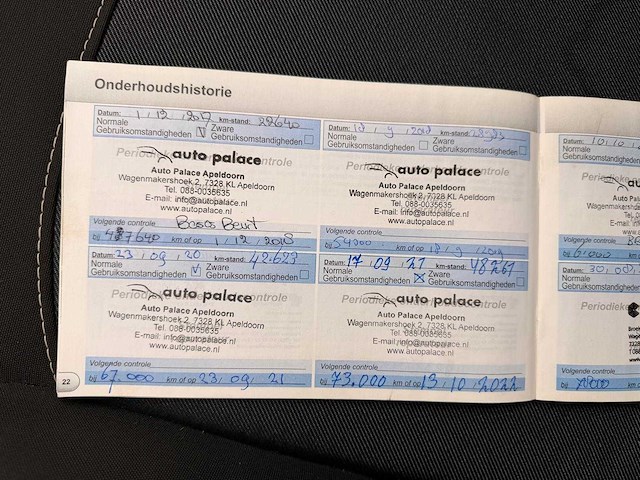 Onderhoudshistorie
Datum: 1, 12, 2017 km-stand: 22640
Normale Gebruiksomstandigheden
Zware Gebruiksomstandigheden
Periodieke controle
auto palace
Auto Palace Apeldoorn
Wagenmakershoek 2, 7328 KL Apeldoorn
Tel. 088-0035635
E-mail: info@autopalace.nl
www.autopalace.nl
Volgende controle
bij km of op 1, 12, 2018
Datum: 18, 9, km-stand:
Normale Gebruiksomstandigheden
Zware Gebruiksomstandigheden
auto palace
Auto Palace Apeldoorn
Wagenmakershoek 2, 7328 KL Apeldoorn
Tel. 088-0035635
E-mail: info@autopalace.nl
www.autopalace.nl
Volgende controle
bij 54000 km of op 18, 9, 2019
Datum: 23, 09, 20 km-stand: 42.623
Normale Gebruiksomstandigheden
Zware Gebruiksomstandigheden
Periodieke controle
auto palace
Auto Palace Apeldoorn
Wagenmakershoek 2, 7328 KL Apeldoorn
Tel. 088-0035635
E-mail: info@autopalace.nl
www.autopalace.nl
Volgende controle
bij 67.000 km of op 23, 09, 21
Datum: 17, 09, 21 km-stand: 48261
Normale Gebruiksomstandigheden
Zware Gebruiksomstandigheden
Periodieke controle
auto palace
Auto Palace Apeldoorn
Wagenmakershoek 2, 7328 KL Apeldoorn
Tel. 088-0035635
E-mail: info@autopalace.nl
www.autopalace.nl
Volgende controle
bij 73.000 km of op 13, 10, 2022
22
Datum: 10, 10,
Normale
Gebruiksomstandigheden
Volgende controle
bij
Datum: 30,
Normale
Gebruiksomstandigheden
Volgende controle
bij